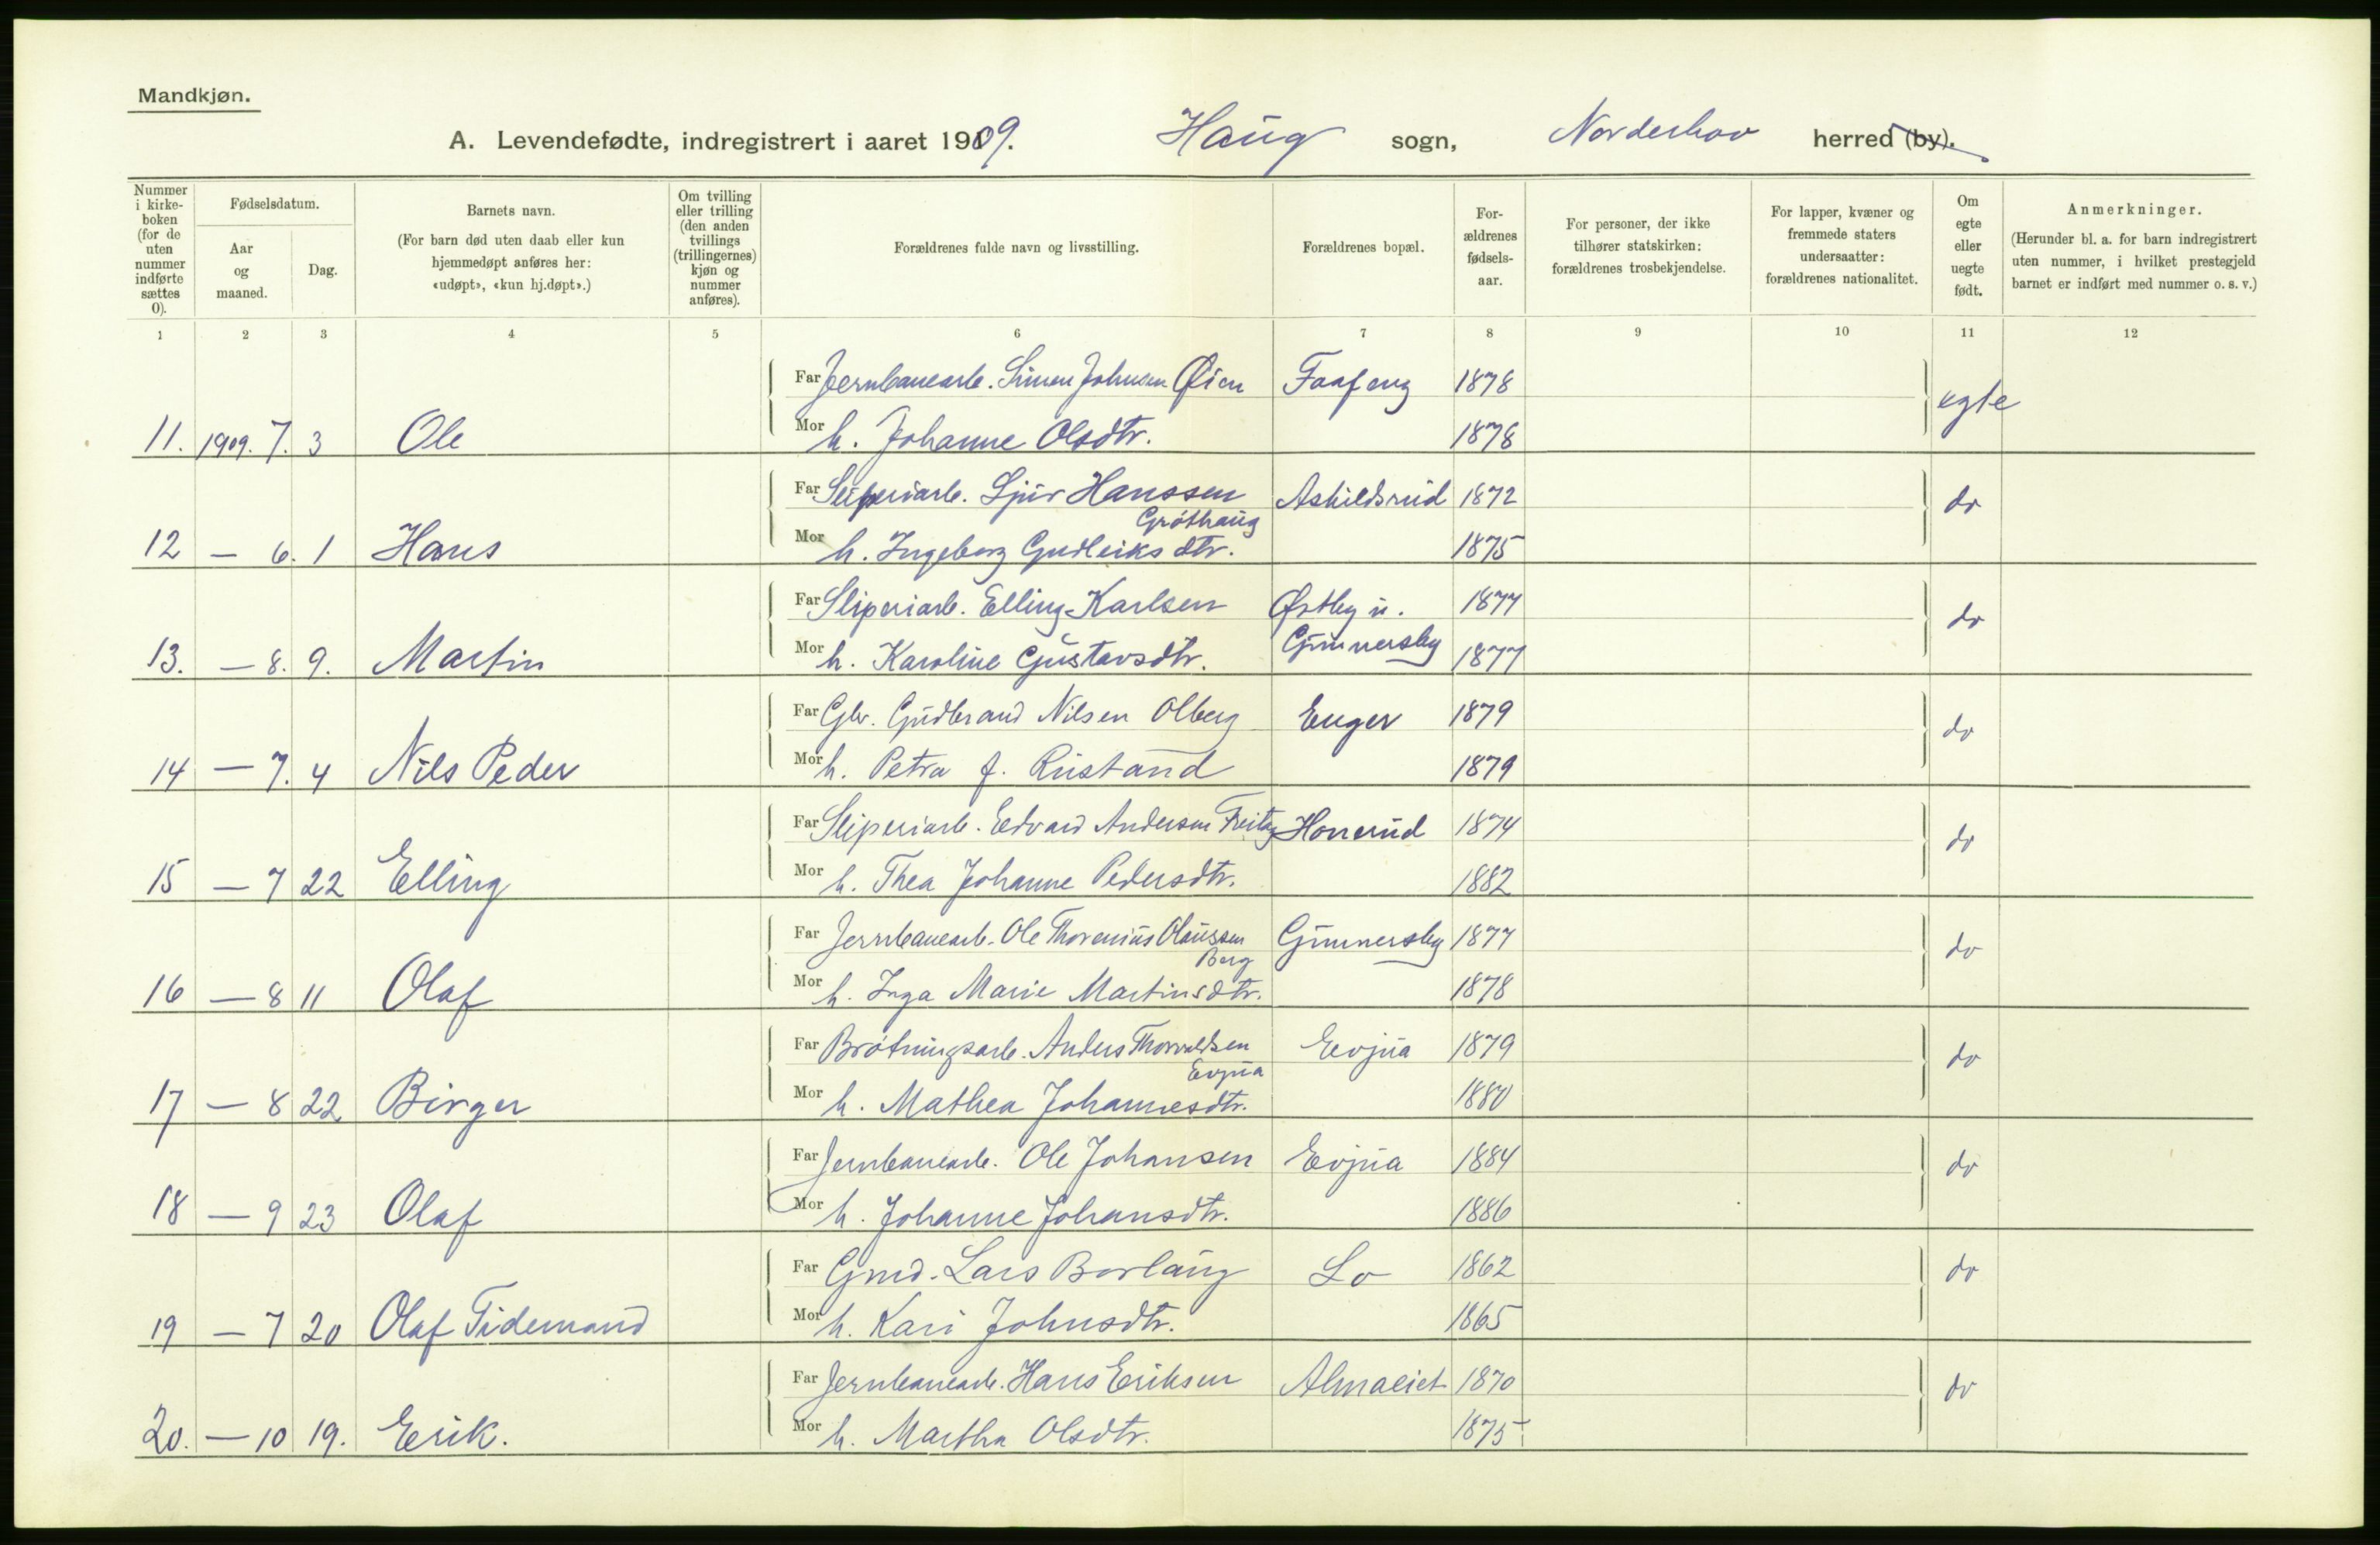 Mandkjøn.
A. Levendefødte, indregistrert i aaret 1909. Haug sogn, Norderhov herred (by).
Nummer i kirke- boken (for de uten nummer indførte sættes 0).
Fødselsdatum.
Aar og maaned.
Dag.
Barnets navn.
(For barn død uten daab eller kun hjemmedøpt anføres her: «udøpt», «kun hj.døpt».)
Om tvilling eller trilling (den anden tvillings (trillingernes) kjøn og nummer anføres).
Forældrenes fulde navn og livsstilling.
Forældrenes bopæl.
For- ældrenes fødsels- aar.
For personer, der ikke tilhører statskirken: forældrenes trosbekjendelse.
For lapper, kvæner og fremmede staters undersaatter: forældrenes nationalitet.
Om egte eller uegte født.
Anmerkninger.
(Herunder bl. a. for barn indregistrert uten nummer, i hvilket prestegjeld barnet er indført med nummer o. s. v.)
1 2 3 4 5 6 7 8 9 10 11 12
Far Jernbanearb. Simen Johnsen Øien Faafeng 1878 egte
11. 1909. 7. 3 Ole Mor h. Johanne Olsdtr. 1878
Far Sliperiarb. Sjur Hanssen Askildsrud 1872 do
Gróthaug
12 — 6. 1 Hans Mor h. Ingeborg Gudleiksdtr. 1875
Far Sliperiarb. Elling Karlsen Østby u. 1877 do
13. — 8. 9. Martin Mor h. Karoline Gustavsdtr. Gunnersby 1877
Far Gbr. Gudbrand Nilsen Olberg Enger 1879 do
14 — 7. 4 Nils Peder Mor h. Petra f. Rustand 1879
Far Sliperiarb. Edvard Andersen Freitag Honerud 1874 do
15 — 7 22 Elling Mor h. Thea Johanne Pedersdtr. 1882
Far Jernbanearb. Ole Thorenius Olaussen Gunnersby 1877 do
Berg
16 — 8 11 Olaf Mor h. Inga Marie Martinsdtr. 1878
Far Brótningsarb. Anders Thorvaldsen Evjua 1879 do
Evjua
17 — 8 22 Birger Mor h. Mathea Johannesdtr. 1880
Far Jernbanearb. Ole Johansen Evjua 1884 do
18 — 9 23 Olaf Mor h. Johanne Johansdtr. 1886
Far Grmd. Lars Borlaug Lo 1862 do
19 — 7 20 Olaf Tidemand Mor h. Kari Johnsdtr. 1865
Far Jernbanearb. Hans Eriksen Almaeiet 1870 do
20. — 10 19. Erik. Mor h. Martha Olsdtr. 1875